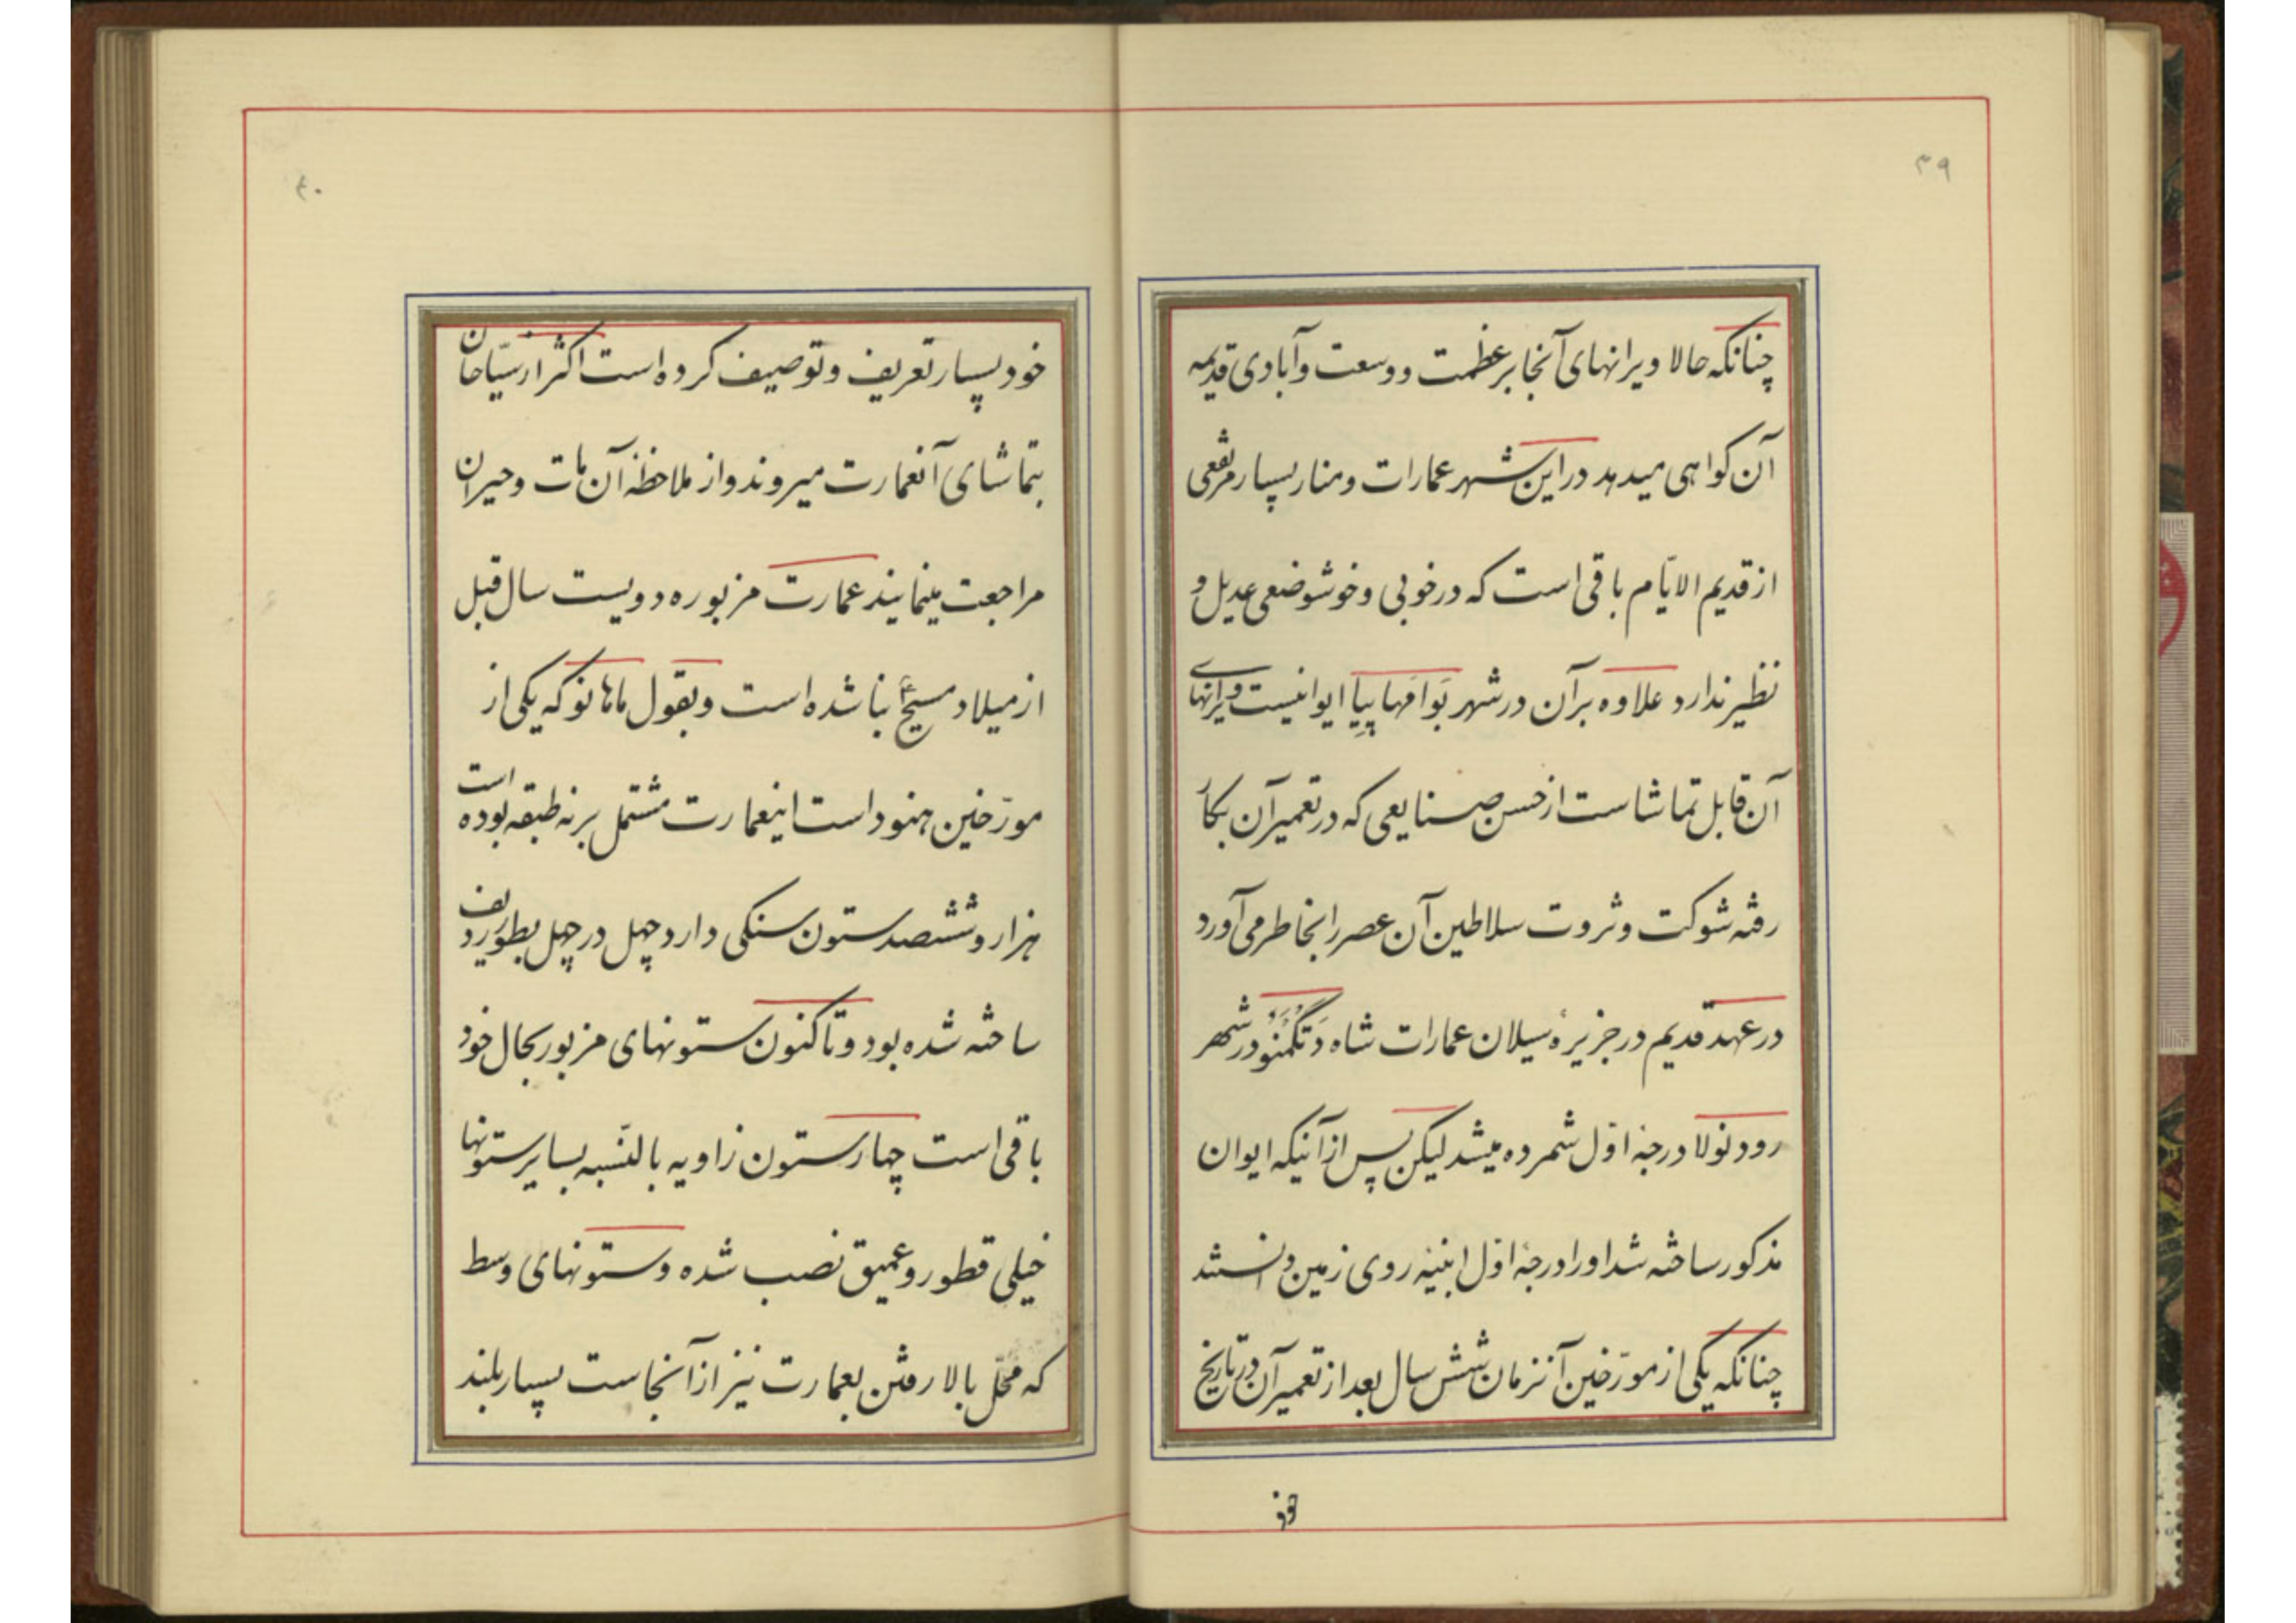 ۳۹
چنانکه حالا ویرانهای آنجا بر عظمت و وسعت و آبادی قدیمه
آن کواهی میدهد در این شهر عمارات و منار بسیار مرتفعی
از قدیم الایّام باقی است که در خوبی و خوشوضعی عدیل و
نظیر ندارد علاوه بر آن در شهر بَوامَهاپیا ایوانیست ویرانهای
آن قابل تماشاست از حسن صنایعی که در تعمیر آن بکار
رفته شوکت و ثروت سلاطین آن عصر را بخاطر می‌آورد
در عهد قدیم در جزیرهٔ سیلان عمارات شاه دتگمنو در شهر
رودنولا درجهٔ اوّل شمرده میشد لیکن پس از آنیکه ایوان
مذکور ساخته شد او را درجهٔ اوّل ابنیهٔ روی زمین دانستند
چنانکه یکی از مورّخین آنزمان شش سال بعد از تعمیر آن در تاریخ
خود
۴۰
خود بسیار تعریف و توصیف کرده است اکثر از سیّاحان
بتماشای آنعمارت میروند و از ملاحظهٔ آن مات و حیران
مراجعت مینمایند عمارت مزبوره دویست سال قبل
از میلاد مسیح ع بنا شده است و بقول ماهانو که یکی از
مورّخین هنود است اینعمارت مشتمل بر نه طبقه بوده است
هزار و ششصد ستون سنکی دارد چهل در چهل بطور ردیف
ساخته شده بود و تاکنون ستونهای مزبور بحال خود
باقی است چهار ستون زاویه بالنّسبه بسایر ستونها
خیلی قطور و عمیق نصب شده و ستونهای وسط
که محلّ بالا رفتن بعمارت نیز از آنجاست بسیار بلند